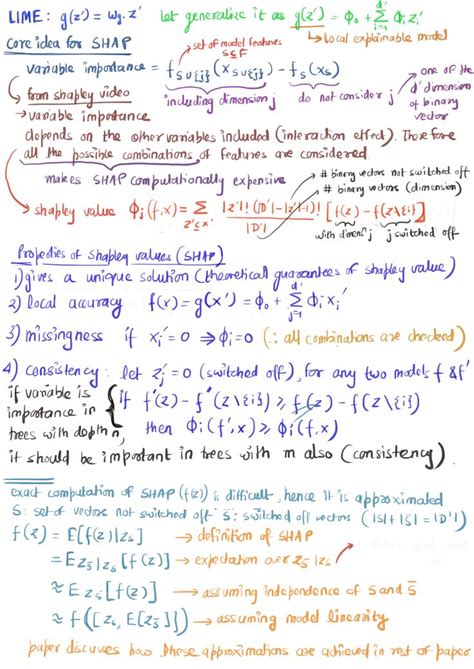 LIME: g(z') = wg. z' let generalize it as g(z') = ϕ₀ + Σ_{i=1}^{d'} ϕᵢ zᵢ'
core idea for SHAP set of model features S⊆F local explainable model
variable importance = f_{S∪{j}}(x_{S∪{j}}) − f_S(x_S)
from shapley video including dimension j do not consider j one of the d' dimension of binary vector
→ variable importance
depends on the other variables included (interaction effect). Therefore
all the possible combinations of features are considered.
makes SHAP computationally expensive
# binary vectors not switched off
# binary vectors (dimension)
→ shapley value ϕⱼ(f,x) = Σ_{z'⊆x'} |z'|! (|D'|−|z'|−1)! / |D'|! [f(z) − f(z\{i})]
with dimen j j switched off
Properties of shapley values (SHAP)
1) gives a unique solution (theoretical guarantees of shapley value)
2) local accuracy f(x) = g(x') = ϕ₀ + Σ_{j=1}^{d'} ϕᵢ xᵢ'
3) missingness if xᵢ' = 0 ⇒ ϕᵢ = 0 (∴ all combinations are checked)
4) consistency: let zᵢ' = 0 (switched off), for any two models f & f'
if variable is importance in trees with depth n, { if f'(z) − f'(z\{i}) ≥ f(z) − f(z\{i})
then ϕᵢ(f',x) ≥ ϕᵢ(f,x)
it should be important in trees with m also (consistency).
exact computation of SHAP (f(z)) is difficult, hence it is approximated
S: set of vectors not switched off S̄: switched off vectors (|S|+|S̄| = |D'|)
f(z) = E[f(z)|z_S] → definition of SHAP
= E_{z_S̄|z_S}[f(z)] → expectation over z_S̄|z_S
≈ E_{z_S̄}[f(z)] → assuming independence of S and S̄
≈ f([z_S, E[z_S̄]]) → assuming model linearity
paper discusses how these approximations are achieved in rest of paper